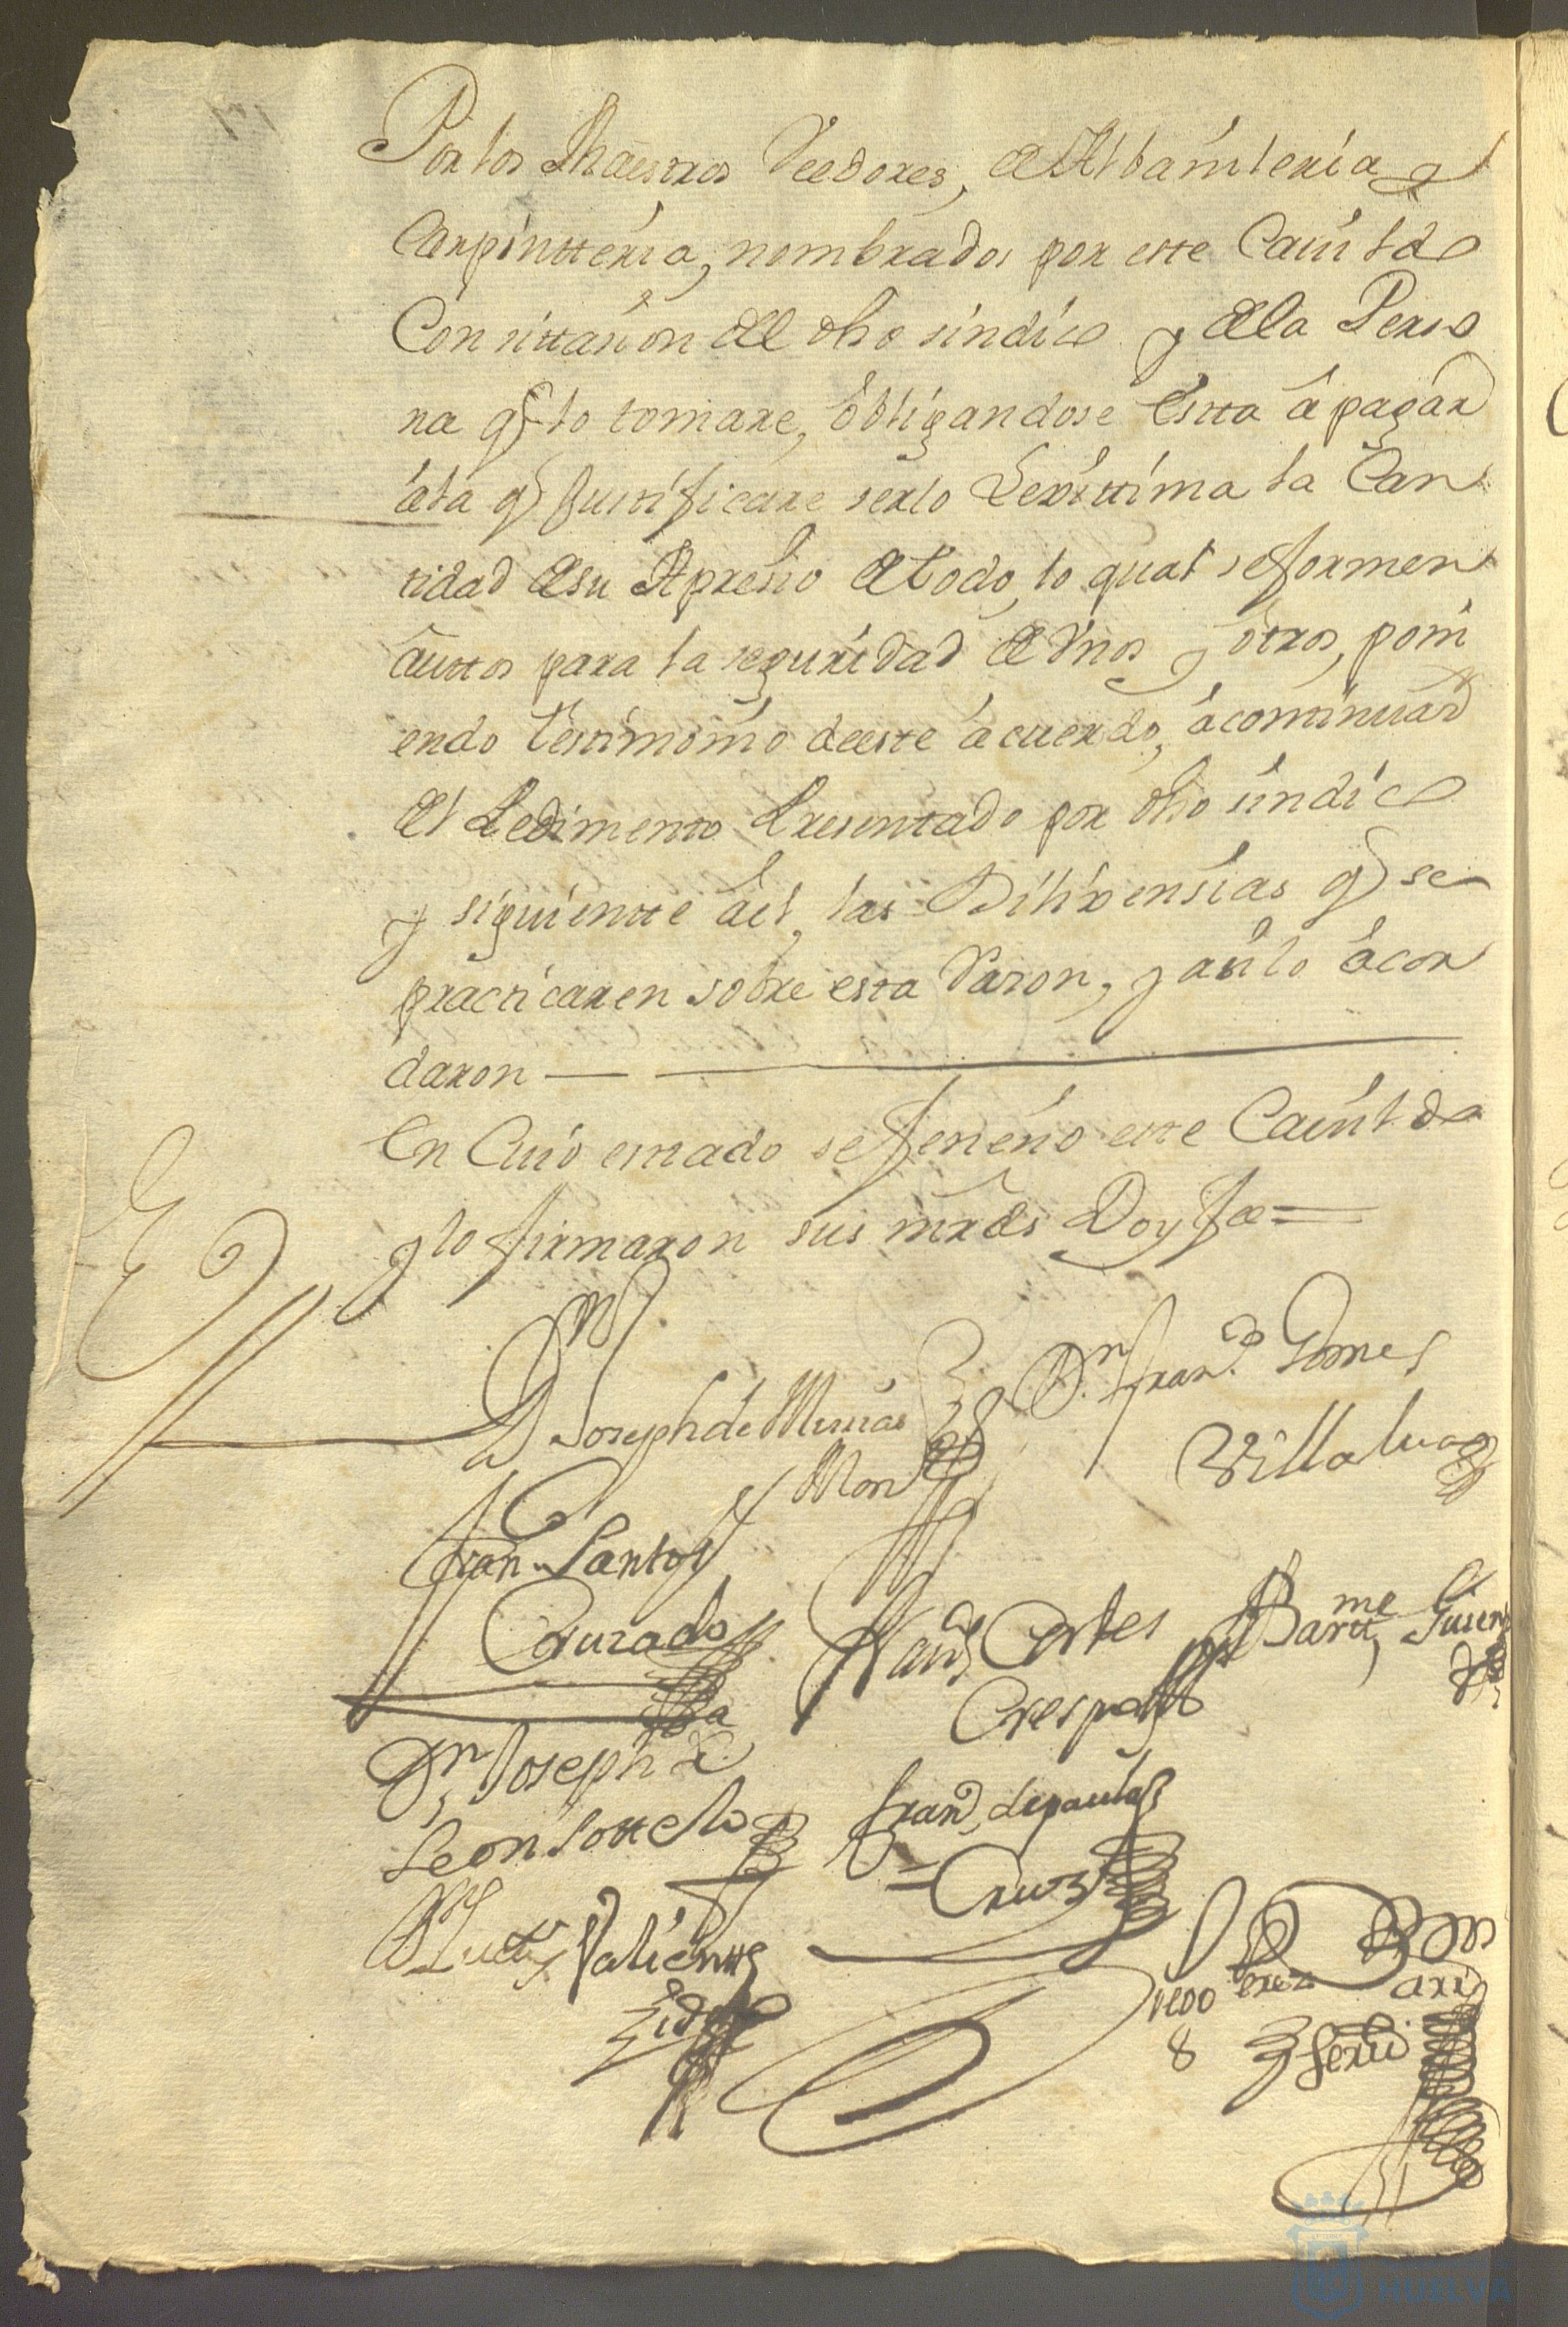 Por los Maestros Veedores, de Albañileria y
Carpintteria, nombrados por este Cavildo
Con sittasion del dho sindico y dela Perso
na q̃ lo tomare, obligandose esta â pagar
âla q̃ Justificare serlo Lexittima la Can
tidad desu Apresio de todo, lo qual se formen
autos para la seguridad de Vnos y otros, poni
endo testimonio deeste âcuerdo, âcontinuasn
del Pedimento Presentado por dho sindico
y siguiente âel, las Dilixensias q̃ se
practicaren sobre esta Razon, y asi lo âcor
daron
En Cuio estado se feneció este Cavildo
y lo firmaron sus mrds Doy fee =
Dn Joseph de
Dn Franco Gomes
Villalva
Fran. Santos
Cortes
Barttme
Crespo
Dn Joseph
Leon Sottelo
Franco de paula
Cruz
Valiente
Perez
HUELVA